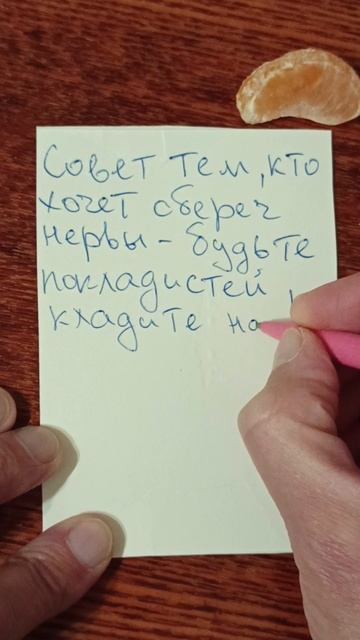 Совет тем, кто
хочет сбереч
нервы - будьте
покладистей,
кладите на